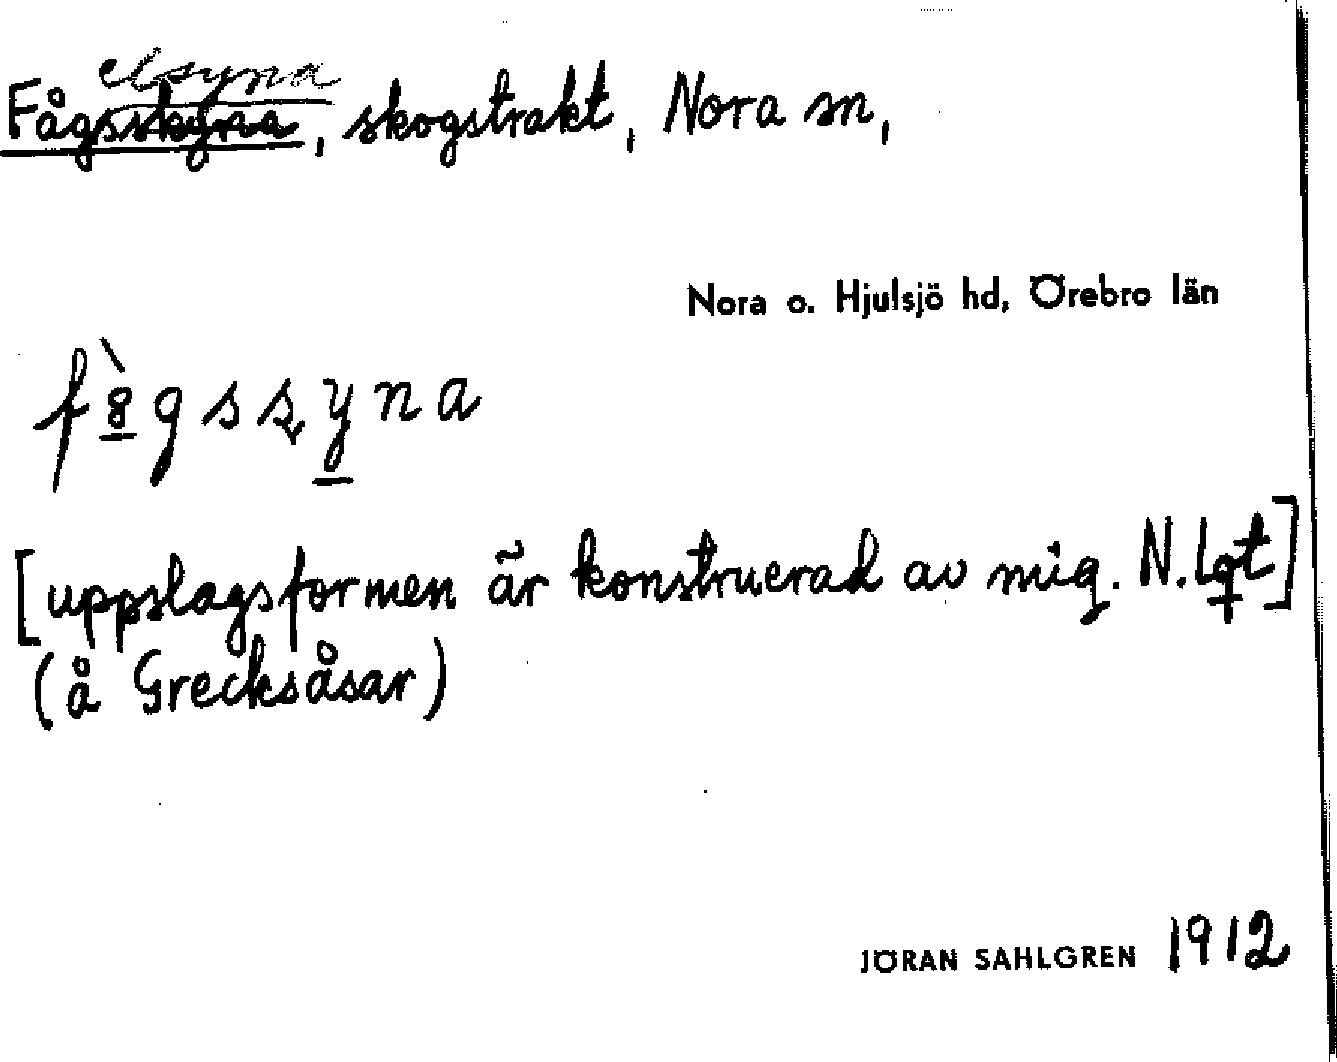 elsyna
Fågsskyna, skogstrakt, Nora sn,
Nora o. Hjulsjö hd, Örebro län
f8̀gssyna
[uppslagsformen är konstruerad av mig. N. Lqt]
(å Grecksåsar)
JÖRAN SAHLGREN 1912